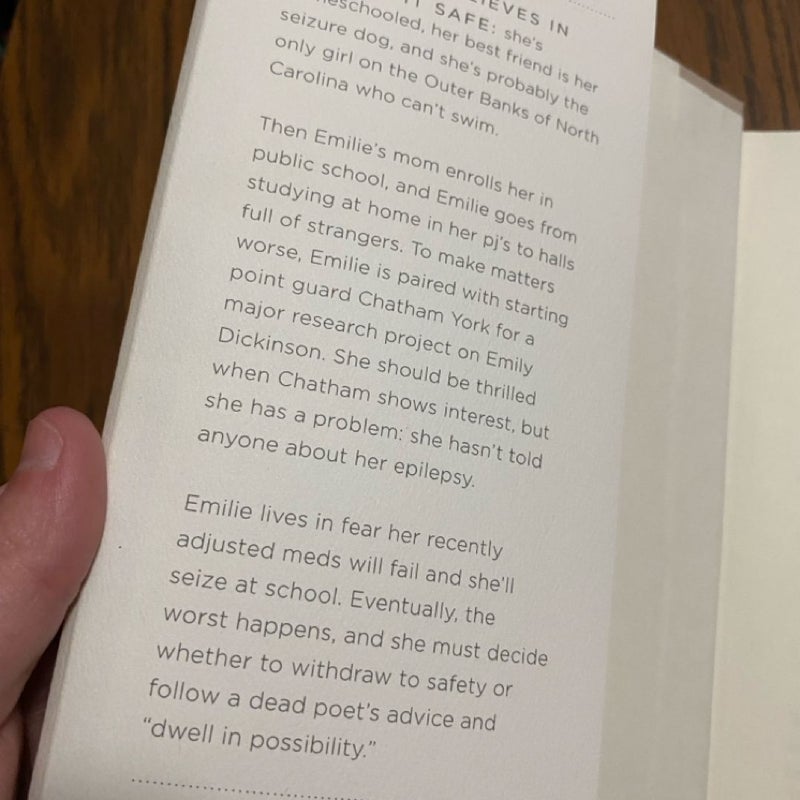 IEVES IN
SAFE: she's
schooled, her best friend is her
seizure dog, and she's probably the
only girl on the Outer Banks of North
Carolina who can't swim.
Then Emilie's mom enrolls her in
public school, and Emilie goes from
studying at home in her pj's to halls
full of strangers. To make matters
worse, Emilie is paired with starting
point guard Chatham York for a
major research project on Emily
Dickinson. She should be thrilled
when Chatham shows interest, but
she has a problem: she hasn't told
anyone about her epilepsy.
Emilie lives in fear her recently
adjusted meds will fail and she'll
seize at school. Eventually, the
worst happens, and she must decide
whether to withdraw to safety or
follow a dead poet's advice and
“dwell in possibility.”